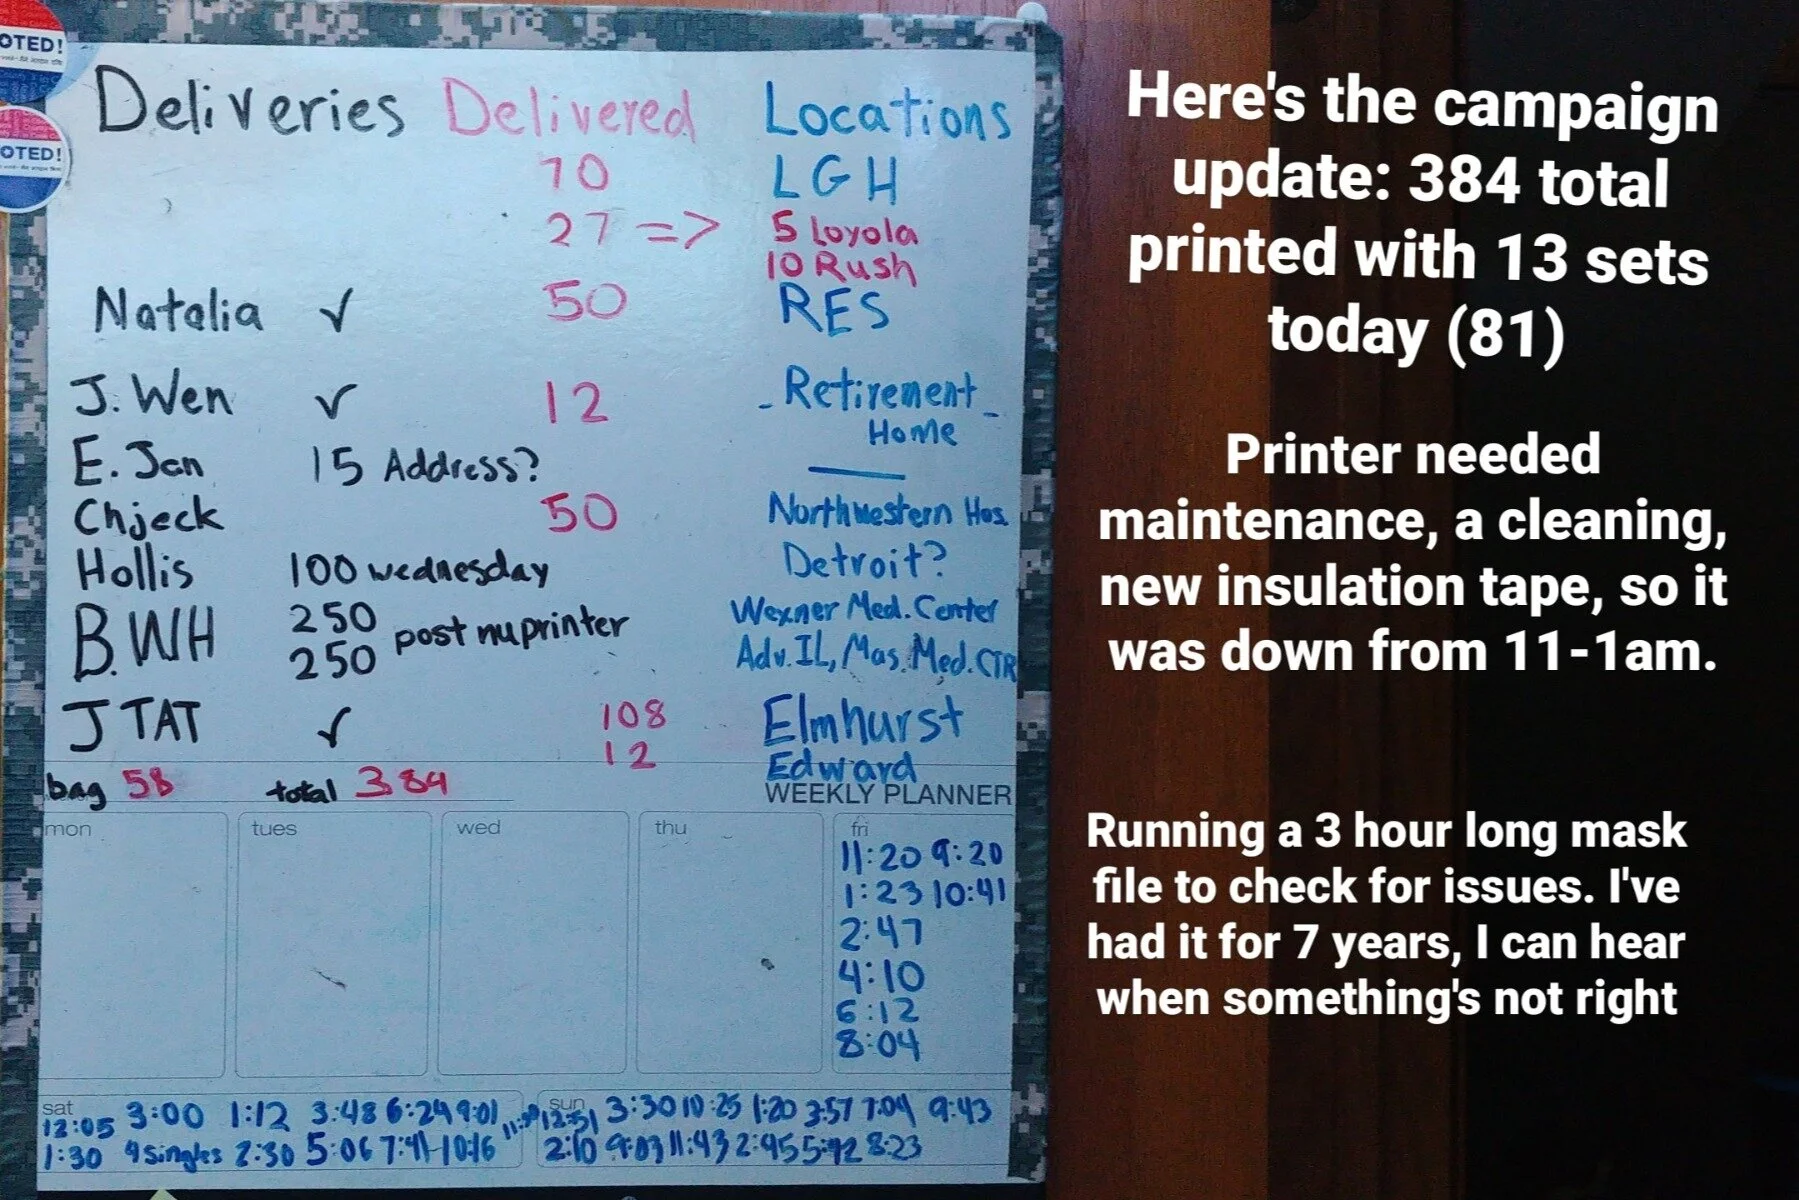 OTED!
OTED!
Deliveries Delivered Locations
70 LGH
27 => 5 Loyola
10 Rush
Natalia ✓ 50 RES
J. Wen ✓ 12 - Retirement -
Home
E. Jan 15 Address?
Chjeck 50 Northwestern Hos.
Hollis 100 wednesday Detroit?
B.WH 250 post nuprinter Wexner Med. Center
250 Adv. IL, Mas. Med. CTR
J TAT ✓ 108 Elmhurst
12 Edward
bag 58 total 384
WEEKLY PLANNER
mon tues wed thu fri
11:20 9:20
1:23 10:41
2:47
4:10
6:12
8:04
sat
12:05 3:00 1:12 3:48 6:24 9:01
1:30 4 singles 2:30 5:06 7:41 10:16
sun
12:51 3:30 10:25 1:20 3:57 7:04 9:43
2:10 9:03 11:43 2:45 5:42 8:23
Here's the campaign
update: 384 total
printed with 13 sets
today (81)
Printer needed
maintenance, a cleaning,
new insulation tape, so it
was down from 11-1am.
Running a 3 hour long mask
file to check for issues. I've
had it for 7 years, I can hear
when something's not right